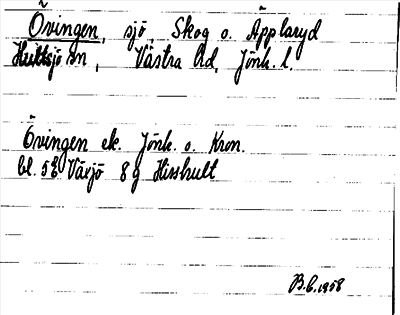 Övingen, sjö, Skog o. Äpplaryd
Hultsjö sn, Västra hd, Jönk. l.
Övingen ek. Jönk. o. Kron.
bl. 5E Växjö 8 g Hisshult
B.C. 1958